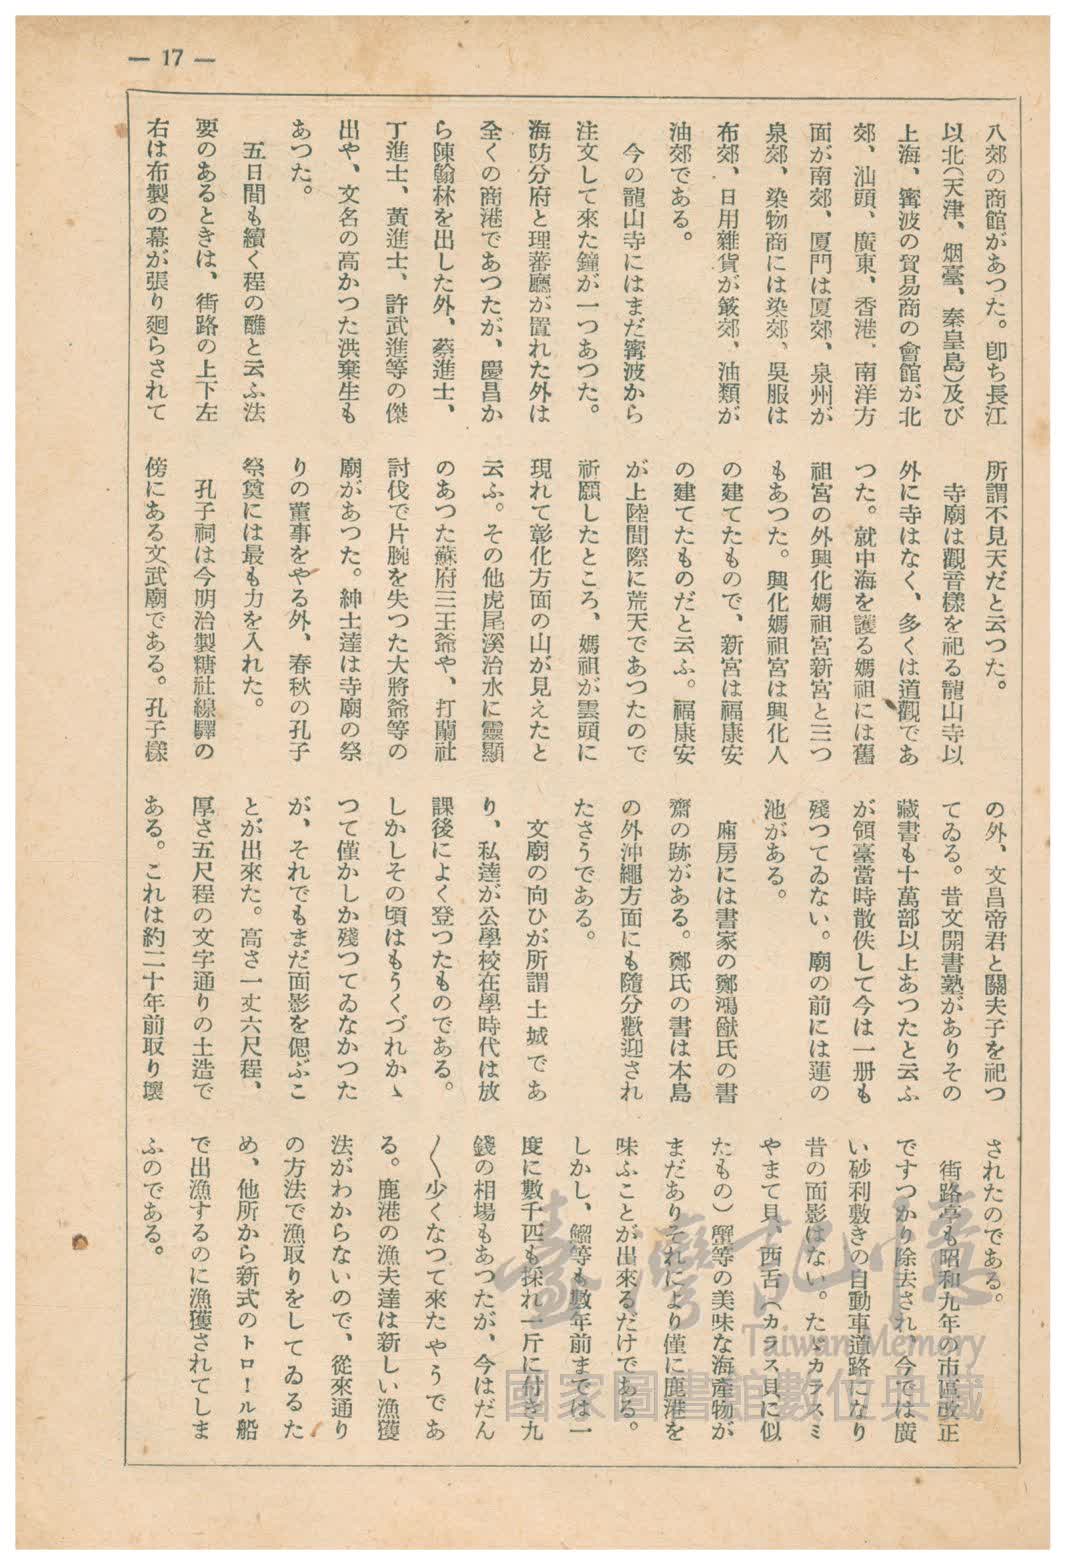 — 17 —
八郊の商館があつた。卽ち長江
以北(天津、烟臺、秦皇島)及び
上海、寗波の貿易商の會館が北
郊、汕頭、廣東、香港、南洋方
面が南郊、厦門は厦郊、泉州が
泉郊、染物商には染郊、吳服は
布郊、日用雜貨が簸郊、油類が
油郊である。
今の龍山寺にはまだ寗波から
注文して來た鐘が一つあつた。
海防分府と理蕃廳が置れた外は
全くの商港であつたが、慶昌か
ら陳翰林を出した外、蔡進士、
丁進士、黃進士、許武進等の傑
出や、文名の高かつた洪棄生も
あつた。
五日間も續く程の醮と云ふ法
要のあるときは、街路の上下左
右は布製の幕が張り廻らされて
所謂不見天だと云つた。
寺廟は觀音樣を祀る龍山寺以
外に寺はなく、多くは道觀であ
つた。就中海を護る媽祖には舊
祖宮の外興化媽祖宮新宮と三つ
もあつた。興化媽祖宮は興化人
の建てたもので、新宮は福康安
の建てたものだと云ふ。福康安
が上陸間際に荒天であつたので
祈願したところ、媽祖が雲頭に
現れて彰化方面の山が見えたと
云ふ。その他虎尾溪治水に靈顯
のあつた蘇府三王爺や、打蘭社
討伐で片腕を失つた大將爺等の
廟があつた。紳士達は寺廟の祭
りの董事をやる外、春秋の孔子
祭奠には最も力を入れた。
孔子祠は今明治製糖社線驛の
傍にある文武廟である。孔子樣
の外、文昌帝君と關夫子を祀つ
てゐる。昔文開書塾がありその
藏書も十萬部以上あつたと云ふ
が領臺當時散佚して今は一册も
殘つてゐない。廟の前には蓮の
池がある。
廂房には書家の鄭鴻猷氏の書
齋の跡がある。鄭氏の書は本島
の外沖繩方面にも隨分歡迎され
たさうである。
文廟の向ひが所謂土城であ
り、私達が公學校在學時代は放
課後によく登つたものである。
しかしその頃はもうくづれかゝ
つて僅かしか殘つてゐなかつた
が、それでもまだ面影を偲ぶこ
とが出來た。高さ一丈六尺程、
厚さ五尺程の文字通りの土造で
ある。これは約二十年前取り壞
されたのである。
街路亭も昭和九年の市區改正
ですつかり除去され、今では廣
い砂利敷きの自動車道路になり
昔の面影はない。たゞカラスミ
やまて貝、西舌(カラス貝に似
たもの)蟹等の美味な海產物が
まだありそれにより僅に鹿港を
味ふことが出來るだけである。
しかし、鰡等も數年前までは一
度に數千匹も採れ一斤に付き九
錢の相場もあつたが、今はだん
〱少くなつて來たやうであ
る。鹿港の漁夫達は新しい漁獲
法がわからないので、從來通り
の方法で漁取りをしてゐるた
め、他所から新式のトロール船
で出漁するのに漁獲されてしま
ふのである。
臺灣記憶
Taiwan Memory
國家圖書館數位典藏